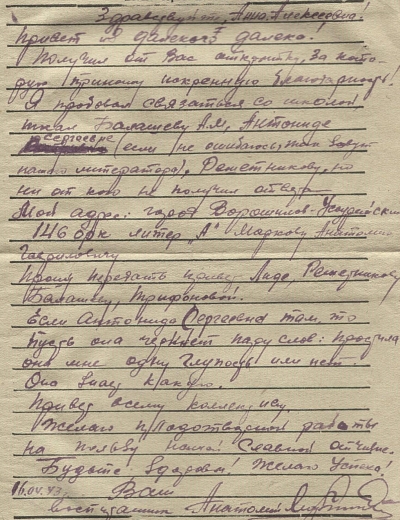 Здравствуйте, Анна Алексеевна!
Привет из далекого далека!
Получил от Вас открытку, за кото-
рую приношу искреннюю благодарность!
Я пробовал связаться со школой
писал Балашеву А.М, Антониде
Сергеевне (если не ошибаюсь, так зовут
нашего литератора), Решетникову, но
ни от кого не получил ответа.
Мой адрес: город Ворошилов-Уссурийский
146 литер "А" Маркову Анатолию
Гавриловичу
Прошу передать привет Лиде, Решетникову
Балашеву, Трифоновой.
Если Антонида Сергеевна там, то
пусть она черкнет пару слов: простила
она мне одну глупость или нет.
Она знает какую.
Привет всему коллективу.
Желаю плодотворной работы
на пользу нашей Славной отчизне.
Будьте здоровы! Желаю успеха!
16.04.43. Ваш
воспитанник Анатолий